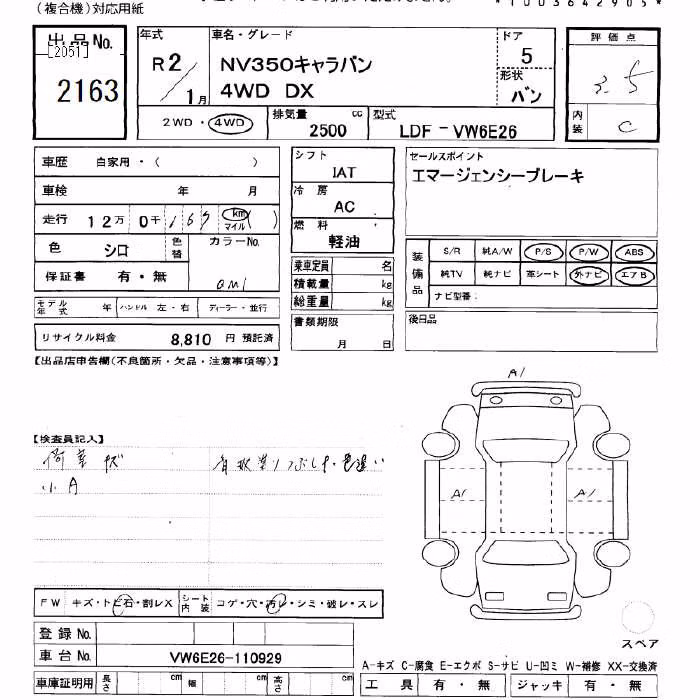 (複合機)対応用紙
*1003642905*
出品No.
[2051]
2163
年式
R2/1月
車名・グレード
NV350キャラバン
4WD DX
ドア
5
形状
バン
評価点
3.5
内装
C
2WD・4WD
排気量
2500 cc
型式
LDF-VW6E26
車歴 自家用・( )
車検 年 月
走行 12万0千169 km マイル ( )
色 シロ 色替 カラーNo.
保証書 有・無
モデル年式 年 ハンドル 左・右 ディーラー・並行
リサイクル料金 8,810 円 預託済
シフト
IAT
冷房
AC
燃料
軽油
乗車定員 名
積載量 kg
総重量 kg
書類期限
月 日
セールスポイント
エマージェンシーブレーキ
装備品
S/R 純A/W P/S P/W ABS
純TV 純ナビ 革シート 外ナビ エアB
ナビ型番:
後日品
【出品店申告欄(不良箇所・欠品・注意事項等)】
【検査員記入】
荷室キズ
小A
A1
A1
A1
FW キズ・トビ石・割レX シート内装 コゲ・穴・汚レ・シミ・破レ・スレ
登録No.
車台No. VW6E26-110929
車庫証明用 長さ cm 幅 cm 高さ cm
スペア
A-キズ C-腐食 E-エクボ S-サビ U-凹ミ W-補修 XX-交換済
工具 有・無 ジャッキ 有・無